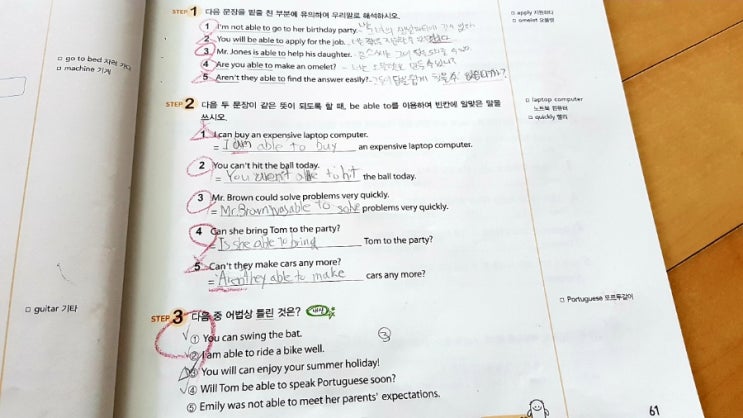 STEP 1 다음 문장을 밑줄 친 부분에 유의하여 우리말로 해석하시오.
1 I'm not able to go to her birthday party.
2 You will be able to apply for the job.
3 Mr. Jones is able to help his daughter.
4 Are you able to make an omelet?
5 Aren't they able to find the answer easily?
□ apply 지원하다
□ omelet 오믈렛
□ go to bed 자러 가다
□ machine 기계
STEP 2 다음 두 문장이 같은 뜻이 되도록 할 때, be able to를 이용하여 빈칸에 알맞은 말을
쓰시오.
1 I can buy an expensive laptop computer.
= I am able to buy an expensive laptop computer.
2 You can't hit the ball today.
= You aren't able to hit the ball today.
3 Mr. Brown could solve problems very quickly.
= Mr. Brown was able to solve problems very quickly.
4 Can she bring Tom to the party?
= Is she able to bring Tom to the party?
5 Can't they make cars any more?
= Aren't they able to make cars any more?
□ laptop computer
노트북 컴퓨터
□ quickly 빨리
STEP 3 다음 중 어법상 틀린 것은?
① You can swing the bat.
② I am able to ride a bike well.
③ You will can enjoy your summer holiday!
④ Will Tom be able to speak Portuguese soon?
⑤ Emily was not able to meet her parents' expectations.
③
□ guitar 기타
□ Portuguese 포르투갈어
61